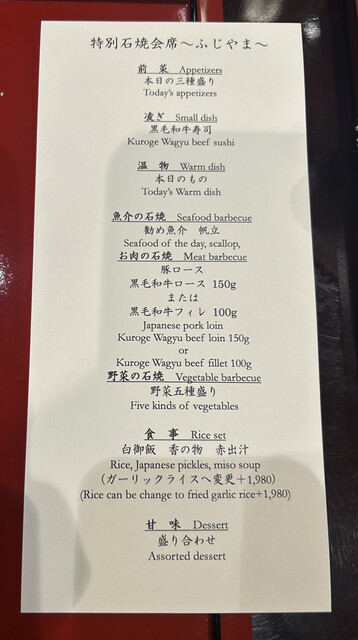 特別石焼会席～ふじやま～
前　菜　Appetizers
本日の三種盛り
Today's appetizers
凌ぎ　Small dish
黒毛和牛寿司
Kuroge Wagyu beef sushi
温　物　Warm dish
本日のもの
Today's Warm dish
魚介の石焼　Seafood barbecue
勧め魚介　帆立
Seafood of the day, scallop,
お肉の石焼　Meat barbecue
豚ロース
黒毛和牛ロース 150g
または
黒毛和牛フィレ 100g
Japanese pork loin
Kuroge Wagyu beef loin 150g
or
Kuroge Wagyu beef fillet 100g
野菜の石焼　Vegetable barbecue
野菜五種盛り
Five kinds of vegetables
食　事　Rice set
白御飯　香の物　赤出汁
Rice, Japanese pickles, miso soup
（ガーリックライスへ変更＋1,980）
(Rice can be change to fried garlic rice+1,980)
甘　味　Dessert
盛り合わせ
Assorted dessert